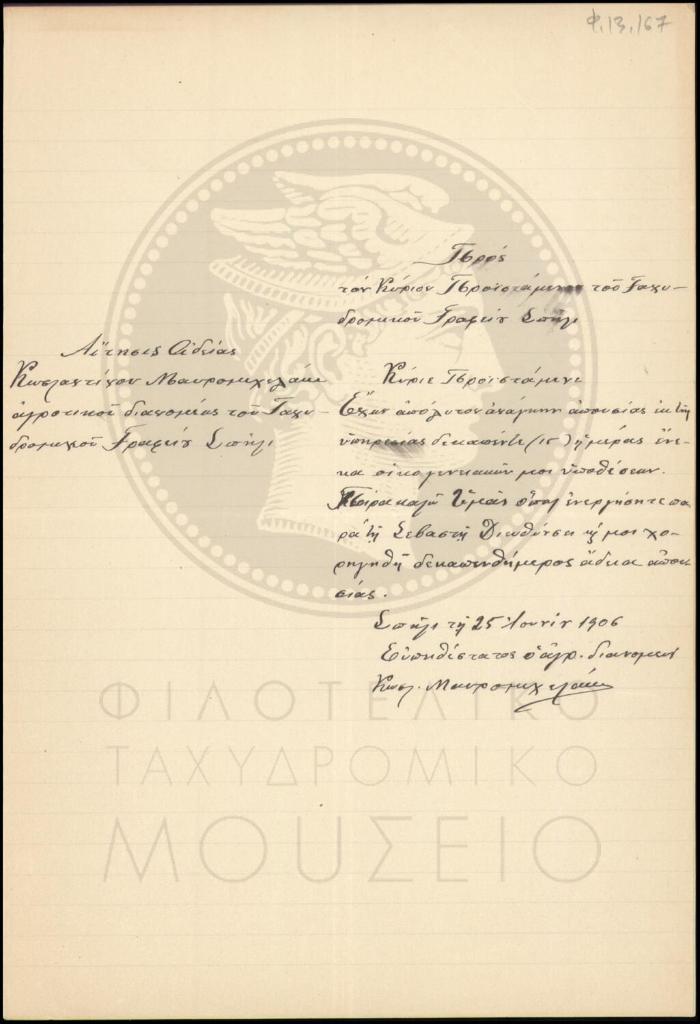 Φ.13./67
Πρός
τόν Κύριον Προϊστάμενον τοῦ Ταχυ-
δρομικοῦ Γραφείου Σπήλι
Αἴτησις Ἀδείας
Κωνσταντίνου Μαυρομιχελάκι
ἀγροτικοῦ διανομέας τοῦ Ταχυ-
δρομικοῦ Γραφείου Σπήλι
Κύριε Προϊστάμενε
Ἔχων ἀπόλυτον ἀνάγκην ἀπουσίας ἐκ τῆς
ὑπηρεσίας δεκαπέντε (15) ἡμέρας ἕνε-
κα οἰκογενειακῶν μοι ὑποθέσεων.
Παρακαλῶ Ὑμᾶς ὅπως ἐνεργήσητε πα
ρά τῇ Σεβαστῇ Διευθύνσει ἵνα μοι χο-
ρηγηθῇ δεκαπενθήμερος ἄδεια ἀπου-
σίας.
Σπήλι τῇ 25 Ἰουνίου 1906
Εὐπειθέστατος ὁ ἀγρ. διανομεύς
Κωνσ. Μαυρομιχελάκις
ΦΙΛΟΤΕΛΙΚΟ
ΤΑΧΥΔΡΟΜΙΚΟ
ΜΟΥΣΕΙΟ